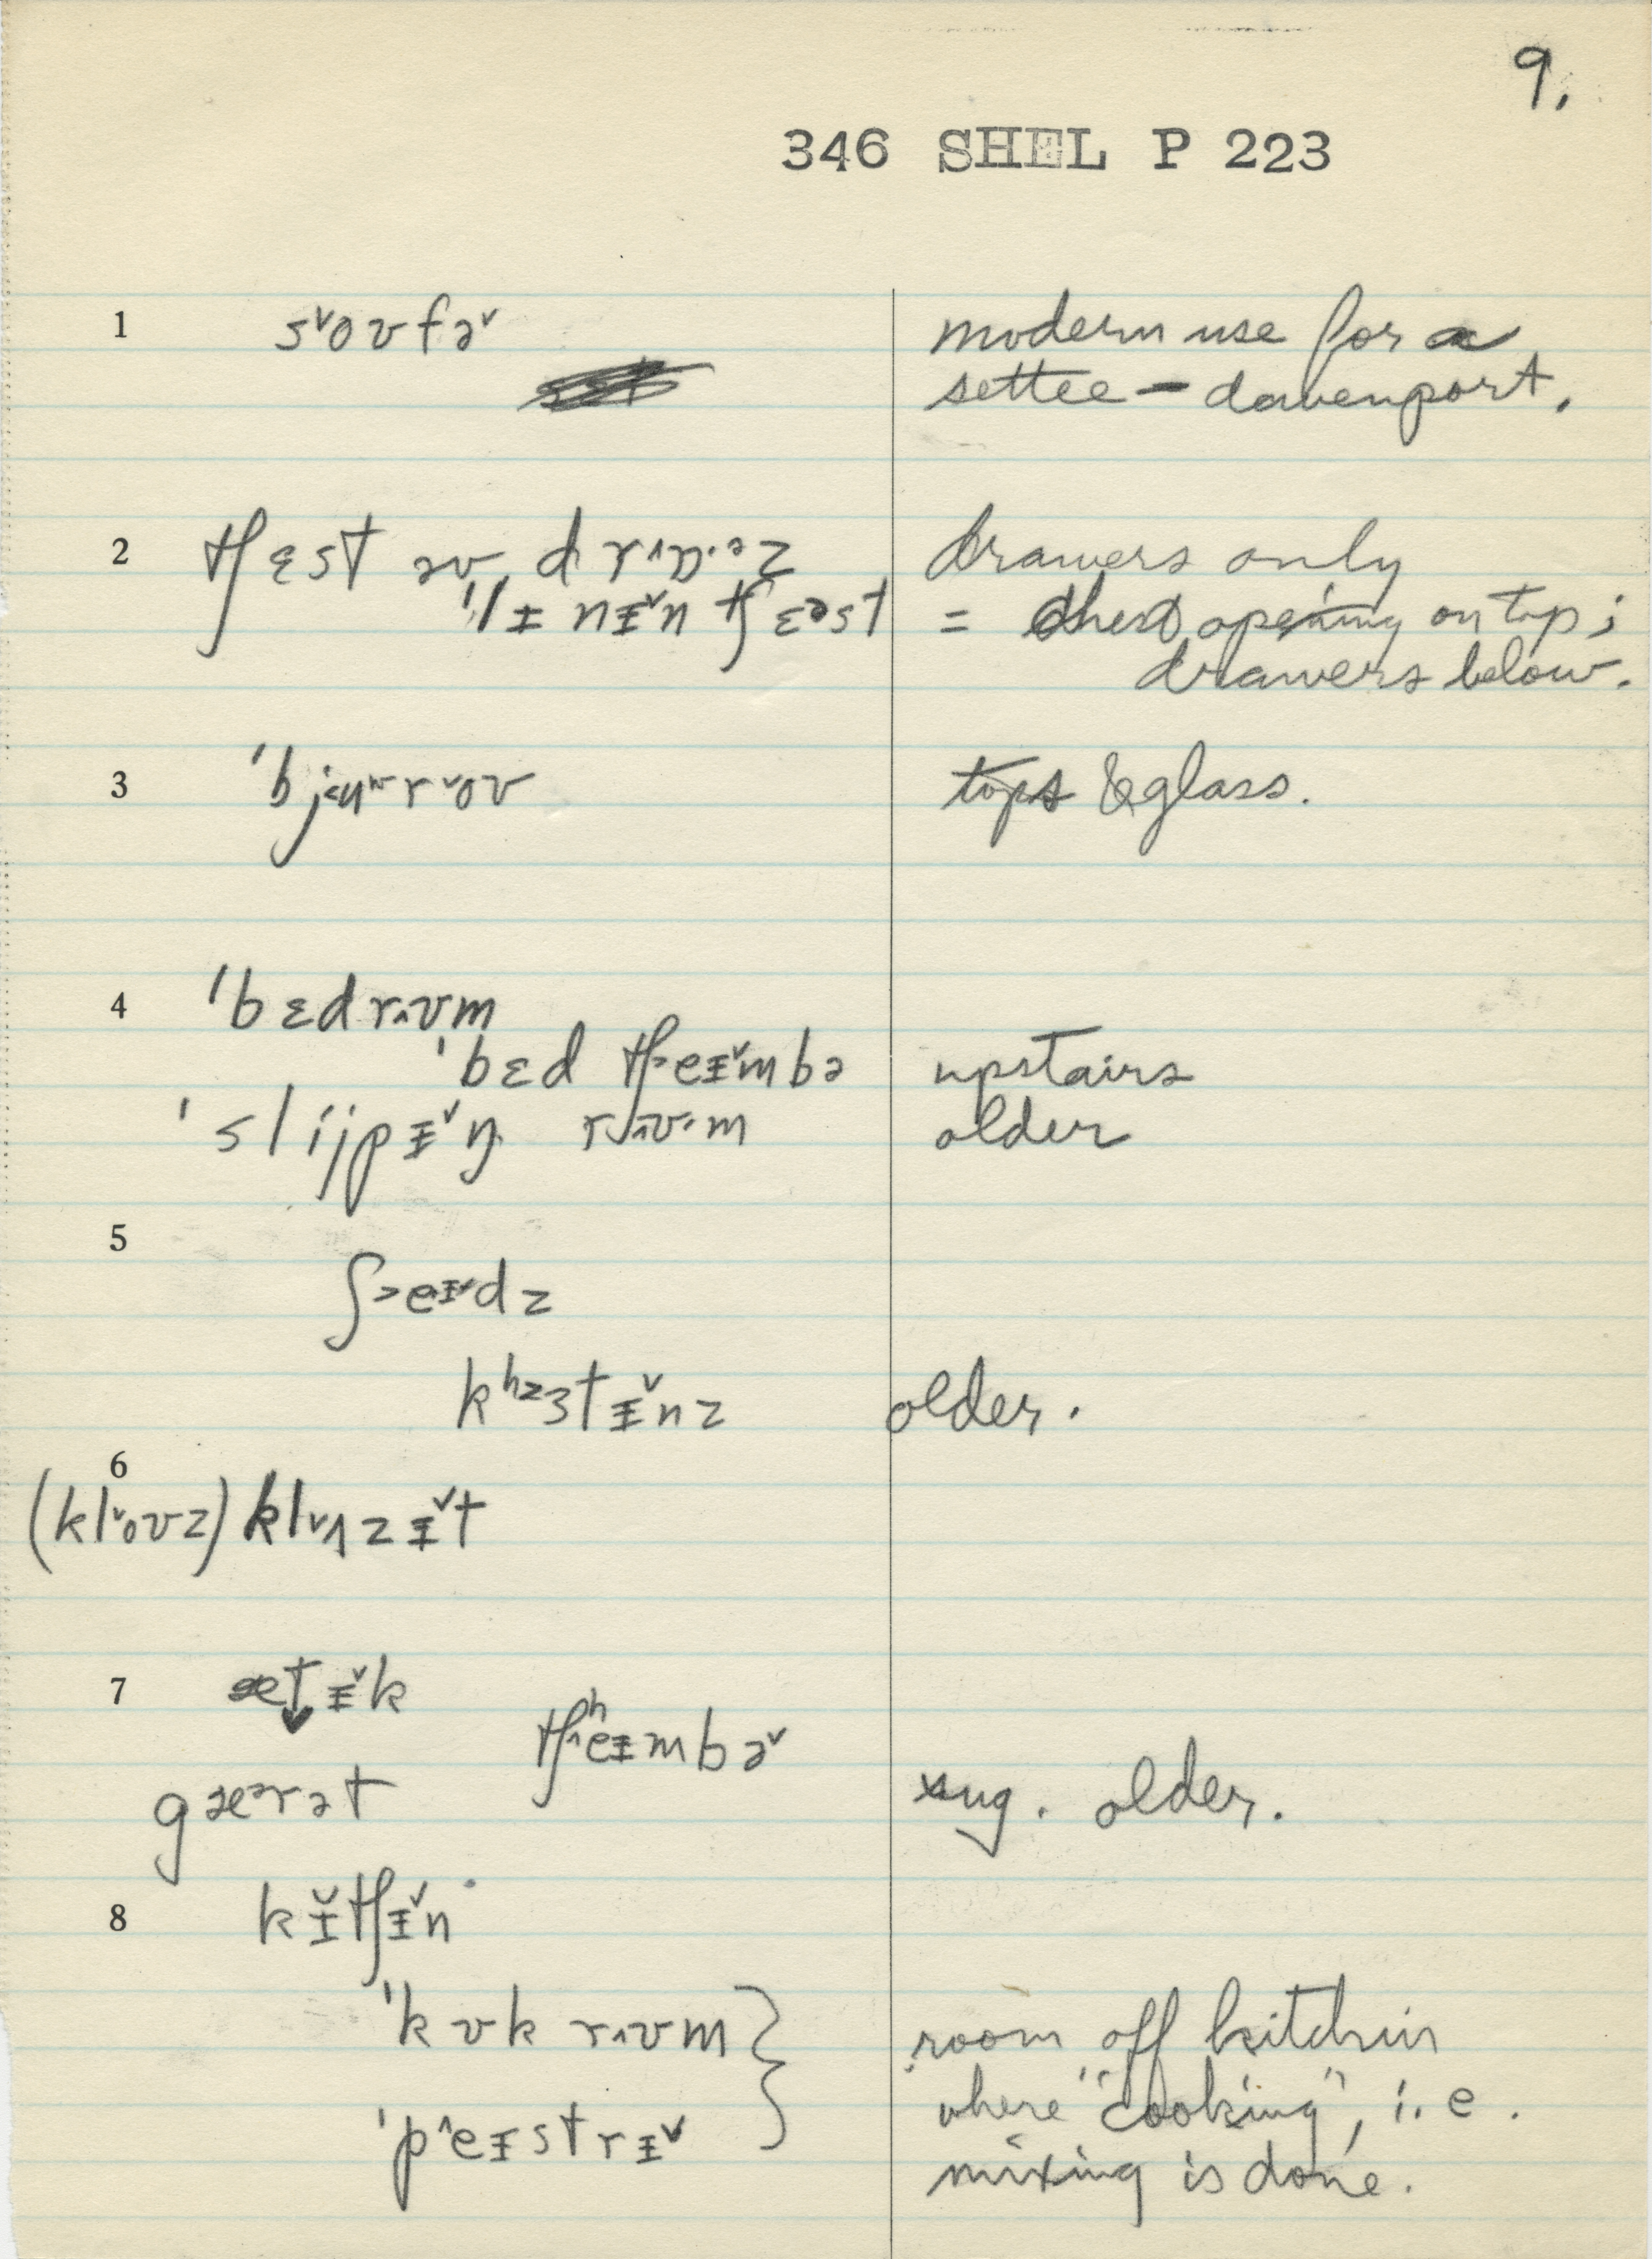 9.
346 SHEL P 223
1 s˅oʊfə˅ modern use for a
settee – davenport.
2 tʃɛst əv drʌɒ·əz drawers only
ˈlᵻnᵻ˅n tʃɛəst = chest opening on top;
drawers below.
3 ˈbj<uʷr˅oʊ tops & glass.
4 ˈbɛdr^ʊm
ˈbɛd tʃ>eᵻ˅mbə upstairs
ˈslijpᵻ˅ŋ r^ʊ·m older
5
ʃ>eᵻ˅dz
kʰɜtᵻ˅nz older.
6
(kl˅oʊz) klɒzᵻ˅t
7 ætᵻ˅k
tʃʰ^eᵻmbə˅
gæərət sug. older.
8 kᵻ̆tʃᵻ˅n
ˈkʊk r^ʊm room off kitchin
where "cooking", i.e.
ˈp^eᵻstrᵻ˅ mixing is done.